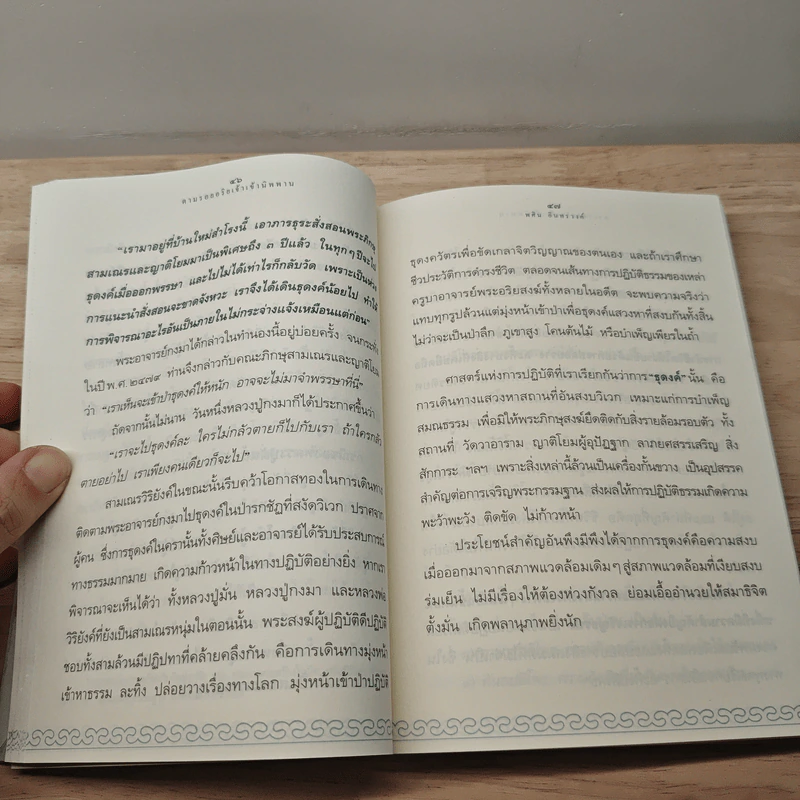 ๔๖
ตามรอยอริยเจ้าเข้านิพพาน
"เรามาอยู่ที่บ้านใหม่สำโรงนี้ เอาภารธุระสั่งสอนพระภิกษุ
สามเณรและญาติโยมมาเป็นพิเศษถึง ๓ ปีแล้ว ในทุกๆ ปีจะไป
ธุดงค์เมื่อออกพรรษา และไปไม่ได้เท่าไรก็กลับวัด เพราะเป็นห่วง
การแนะนำสั่งสอนจะขาดจังหวะ เราจึงได้เดินธุดงค์น้อยไป ทำให้
การพิจารณาอะไรอันเป็นภายในไม่กระจ่างแจ้งเหมือนแต่ก่อน"
พระอาจารย์กงมาได้กล่าวในทำนองนี้อยู่บ่อยครั้ง จนกระทั่ง
ในปี พ.ศ. ๒๔๗๙ ท่านจึงกล่าวกับคณะภิกษุสามเณรและญาติโยม
ว่า "เราเห็นจะเข้าป่าธุดงค์ให้หนัก อาจจะไม่มาจำพรรษาที่นี่"
ถัดจากนั้นไม่นาน วันหนึ่งหลวงปู่กงมาก็ได้ประกาศขึ้นว่า
"เราจะไปธุดงค์ละ ใครไม่กลัวตายก็ไปกับเรา ถ้าใครกลัว
ตายอย่าไป เราเพียงคนเดียวก็จะไป"
สามเณรวิริยังค์ในขณะนั้นรีบคว้าโอกาสทองในการเดินทาง
ติดตามพระอาจารย์กงมาไปธุดงค์ในป่ารกชัฏที่สงัดวิเวก ปราศจาก
ผู้คน ซึ่งการธุดงค์ในครานั้นทั้งศิษย์และอาจารย์ได้รับประสบการณ์
ทางธรรมมากมาย เกิดความก้าวหน้าในทางปฏิบัติอย่างยิ่ง หากเรา
พิจารณาจะเห็นได้ว่า ทั้งหลวงปู่มั่น หลวงปู่กงมา และหลวงพ่อ
วิริยังค์ที่ยังเป็นสามเณรหนุ่มในตอนนั้น พระสงฆ์ผู้ปฏิบัติดีปฏิบัติ
ชอบทั้งสามล้วนมีปฏิปทาที่คล้ายคลึงกัน คือการเดินทางมุ่งหน้า
เข้าหาธรรม ละทิ้ง ปล่อยวางเรื่องทางโลก มุ่งหน้าเข้าป่าปฏิบัติ
๔๗
พศิน อินทรวงค์
ธุดงควัตรเพื่อขัดเกลาจิตวิญญาณของตนเอง และถ้าเราศึกษา
ชีวประวัติการดำรงชีวิต ตลอดจนเส้นทางการปฏิบัติธรรมของเหล่า
ครูบาอาจารย์พระอริยสงฆ์ทั้งหลายในอดีต จะพบความจริงว่า
แทบทุกรูปล้วนแต่มุ่งหน้าเข้าป่าเพื่อธุดงค์แสวงหาที่สงบกันทั้งสิ้น
ไม่ว่าจะเป็นป่าลึก ภูเขาสูง โคนต้นไม้ หรือบำเพ็ญเพียรในถ้ำ
ศาสตร์แห่งการปฏิบัติที่เราเรียกกันว่าการ "ธุดงค์" นั้น คือ
การเดินทางแสวงหาสถานที่อันสงบวิเวก เหมาะแก่การบำเพ็ญ
สมณธรรม เพื่อมิให้พระภิกษุสงฆ์ยึดติดกับสิ่งรายล้อมรอบตัว ทั้ง
สถานที่ วัดวาอาราม ญาติโยมผู้อุปัฏฐาก ลาภยศสรรเสริญ สิ่ง
สักการะ ฯลฯ เพราะสิ่งเหล่านี้ล้วนเป็นเครื่องกั้นขวาง เป็นอุปสรรค
สำคัญต่อการเจริญพระกรรมฐาน ส่งผลให้การปฏิบัติธรรมเกิดความ
พะว้าพะวัง ติดขัด ไม่ก้าวหน้า
ประโยชน์สำคัญอันพึงมีพึงได้จากการธุดงค์คือความสงบ
เมื่อออกมาจากสภาพแวดล้อมเดิมๆ สู่สภาพแวดล้อมที่เงียบสงบ
ร่มเย็น ไม่มีเรื่องให้ต้องห่วงกังวล ย่อมเอื้ออำนวยให้สมาธิจิต
ตั้งมั่น เกิดพลานุภาพยิ่งนัก